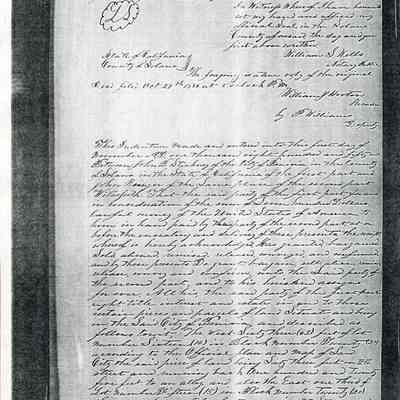 L.S.
In Witness Whereof I have hereunto
set my hand and affixed my
Official Seal, in the
County aforesaid the day and year
first above written
William S. Wells
Notary Public
State of California
County of Solano
The foregoing is a true copy of the original
Deed filed Nov 29th at 5 o'clock P.M.
William J.
Recorder
by P. Williams
Deputy
This Indenture made and entered into this first day of
November AD one thousand eight hundred and fifty
Between John B. of the City of Benicia in the County
of Solano in the State of California of the first part and
John of the Same place of the second part
Witnesseth That the said party of the first part for and
in consideration of the sum of hundred Dollars
lawful money of the United States of America to
him in hand paid by the party of the second part at or
before the ensealing and delivery of these presents the receipt
whereof is hereby acknowledged. Has granted bargained
Sold aliened, remised, released conveyed and confirmed
and by these presents Do grant bargain sell alien remise
release convey and confirm unto the said party of
the second part, and to his heirs and assigns
forever All the the said party of the first part
right title interest and estate in and to those
certain pieces and parcels of land Situate and being
in the Said City of Benicia and described as
follows to wit The West Sixty three (63) feet of lot
number Sixteen (16) in Block Number Twenty
according to the Official Plan and map of Said
City the said piece of land being Sixty three feet on
Street and running back One hundred and Twenty
five feet to an alley and also the East one third of
Lot Number Fifteen (15) in Block Number twenty